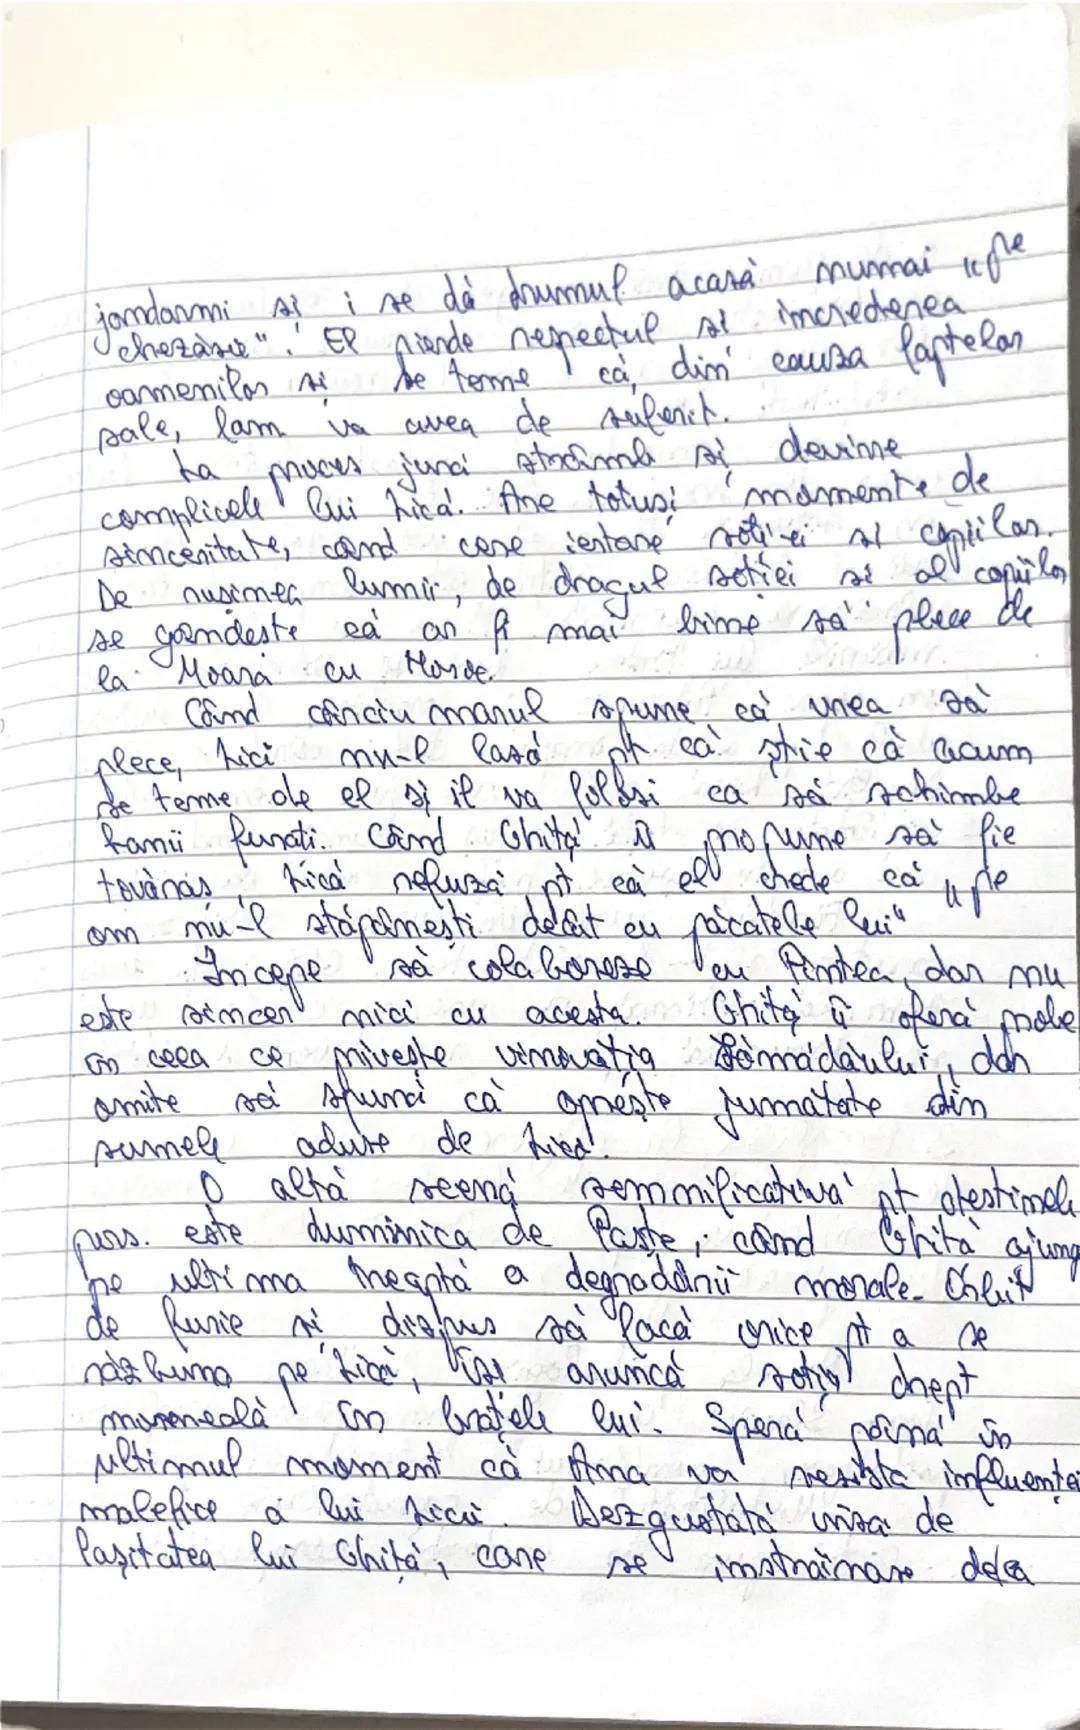 jandarmi și i se dă drumul acasă numai "pe
chezășie". El pierde respectul și încrederea
oamenilor și se teme că, din cauza faptelor
sale, fam va avea de suferit.
La proces jură strâmb și devine
complicele lui Lică. Are totuși momente de
sinceritate, când cere iertare soției și copiilor.
De rușinea lumii, de dragul soției și al copiilor
se gândește că ar fi mai bine să plece de
la Moara cu Noroc.
Când cârciumarul spune că vrea să
plece, Lică nu-l lasă pt că știe că acum
se teme de el și îl va folosi ca să schimbe
banii furați. Când Ghiță îi propune să fie
tovarăș, Lică refuză pt că el crede că "pe
om nu-l stăpânești decât cu păcatele lui"
Începe să colaboreze cu Pintea, dar nu
este sincer nici cu acesta. Ghiță îi oferă probe
în ceea ce privește vinovăția Sămădăului, dar
omite să spună că oprește jumătate din
sumele aduse de Lică.
O altă scenă semnificativă pt destinele
pers. este duminica de Paște, când Ghiță ajunge
pe ultima treaptă a degradării morale. Orbit
de furie și dispus să facă orice pt a se
răzbuna pe Lică, își aruncă soția drept
mureneală în brațele lui. Speră până în
ultimul moment că Ana va rezista influenței
malefice a lui Lică. Dezgustată însă de
lașitatea lui Ghiță, care se înstrăinase dela